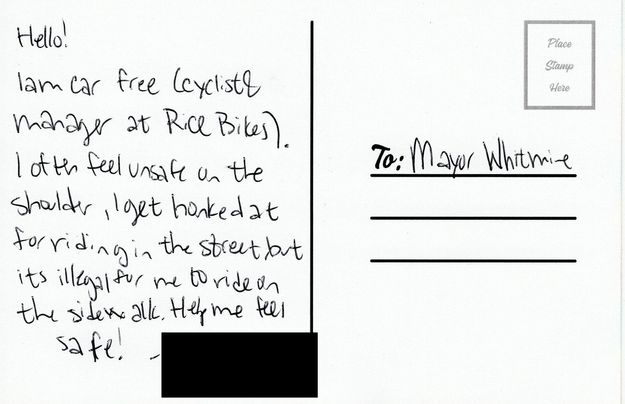 Hello!
I am car free (cyclist &
manager at Rice Bikes).
I often feel unsafe on the
shoulder, I get honked at
for riding in the street but
its illegal for me to ride on
the sidewalk. Help me feel
safe! -
Place
Stamp
Here
To: Mayor Whitmire